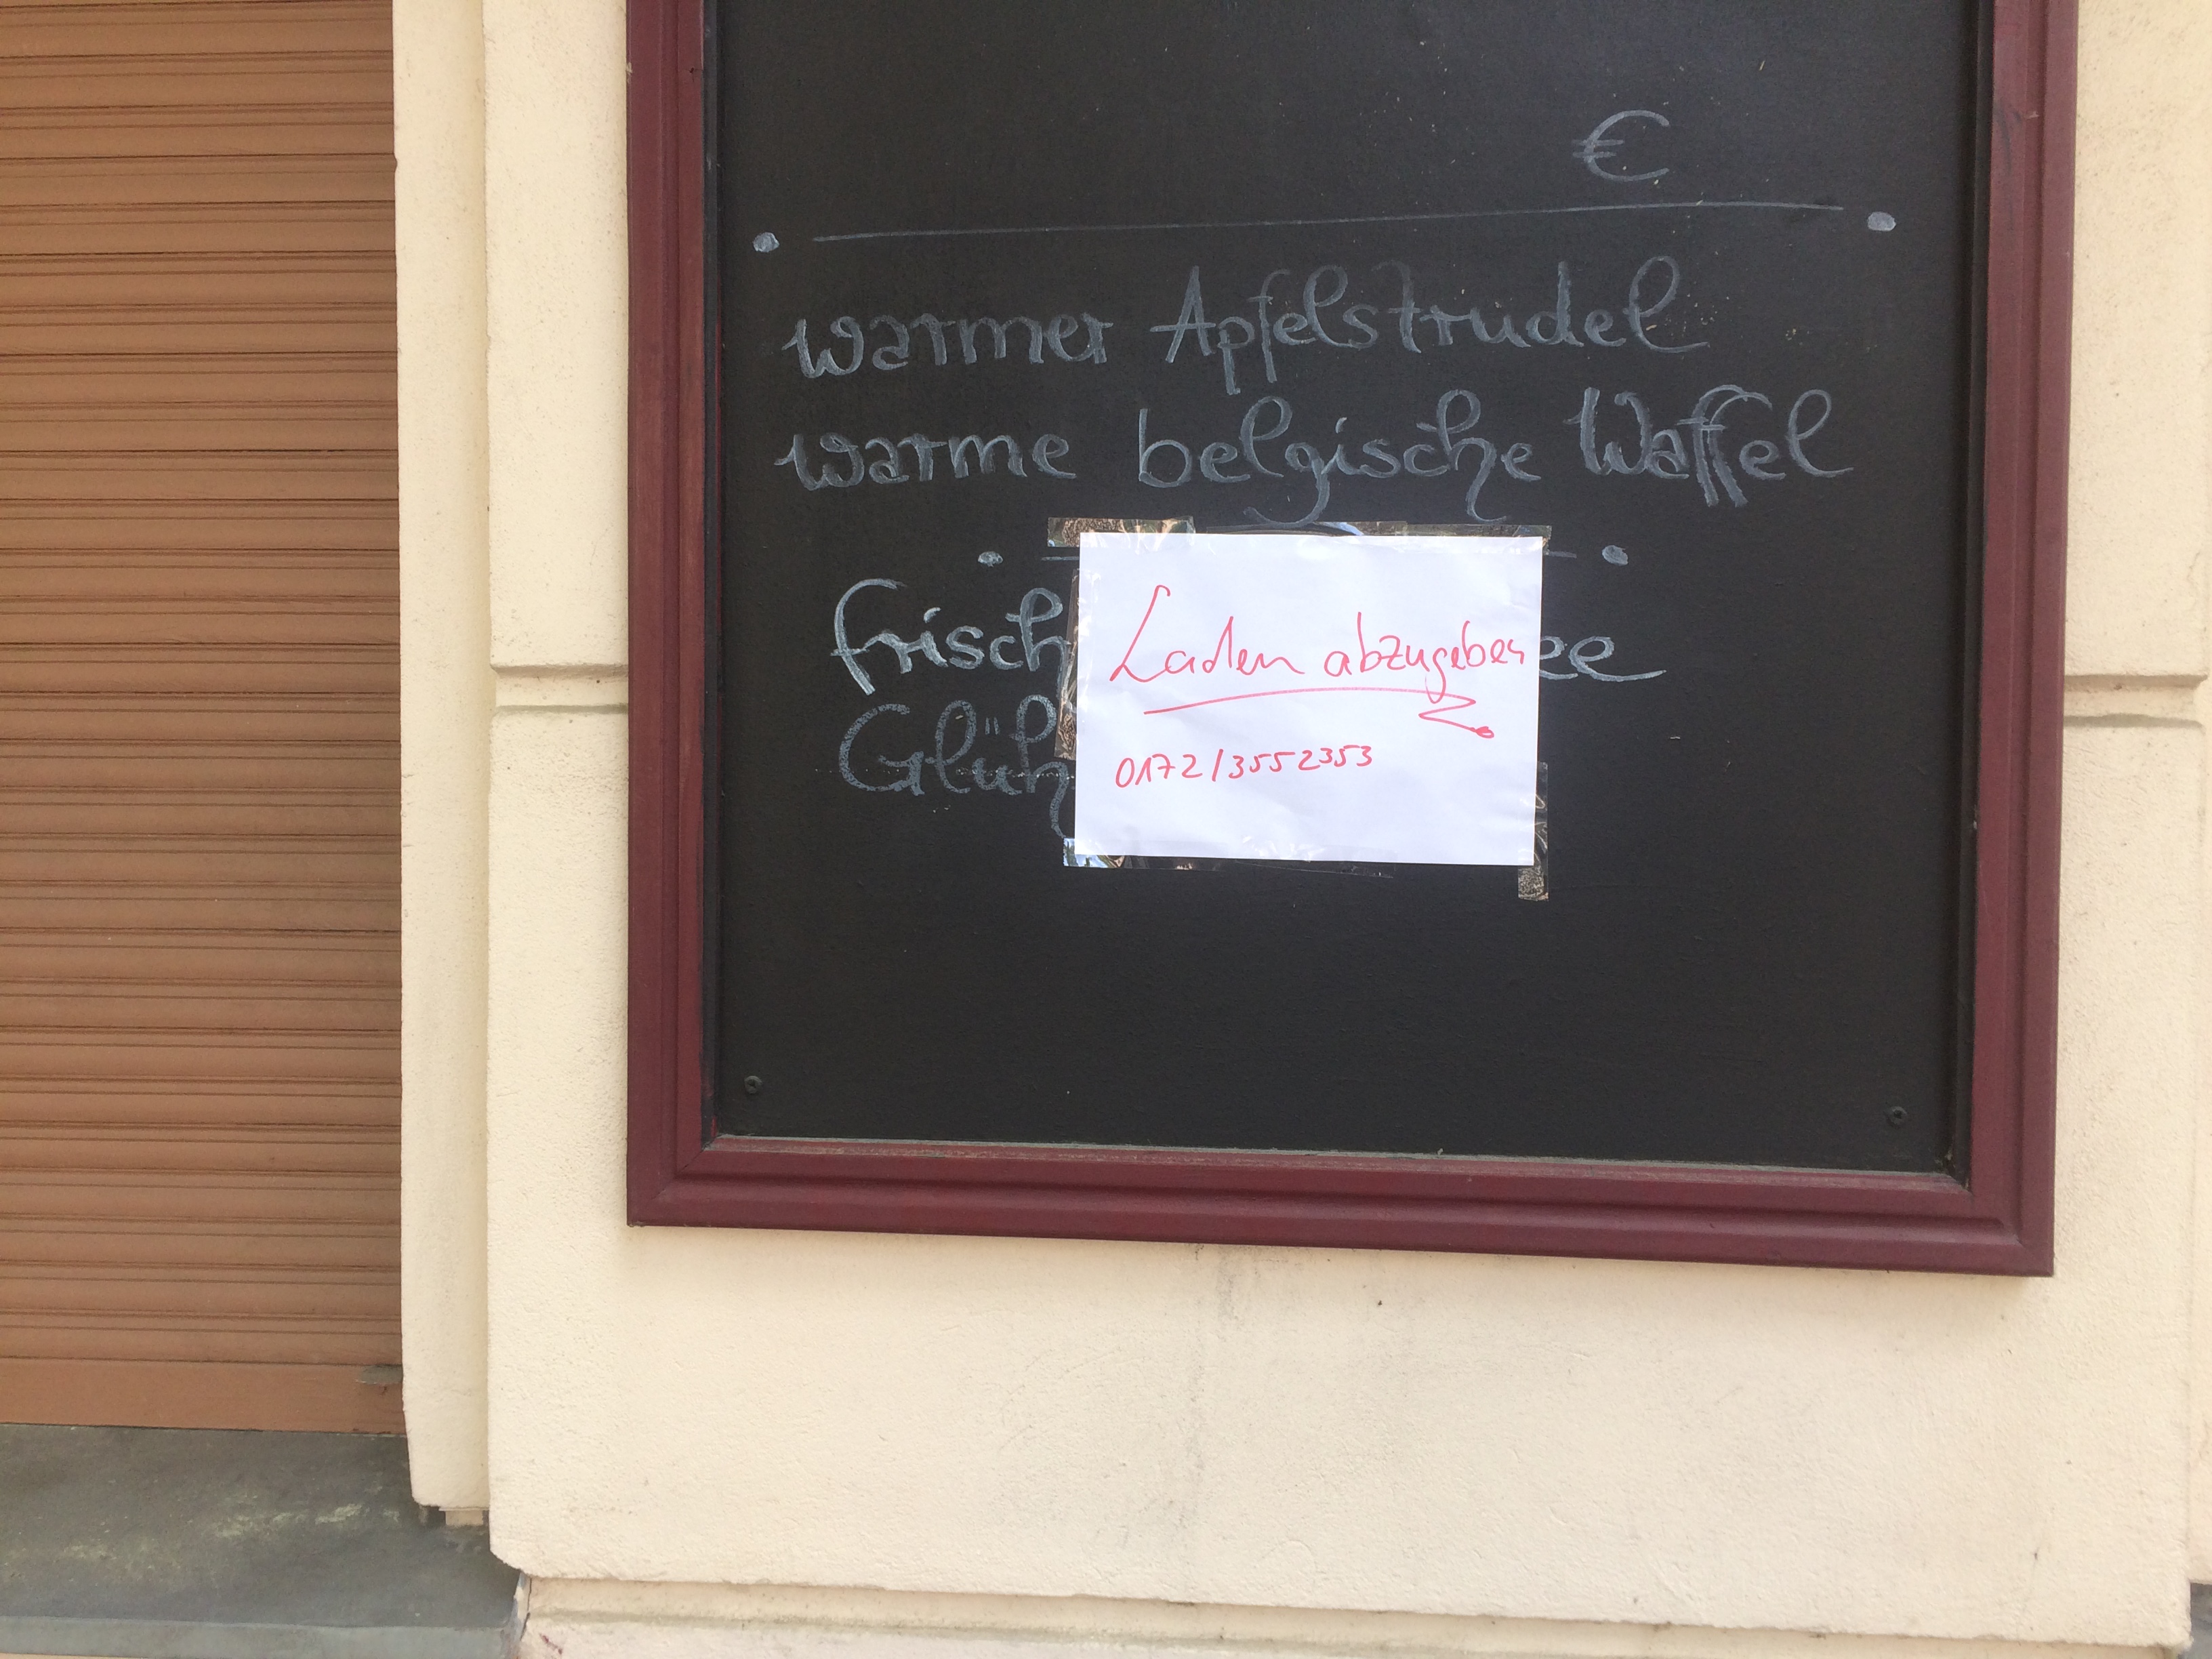 €
warmer Apfelstrudel
warme belgische Waffel
frisch
Laden abzugeben
0172/3552353